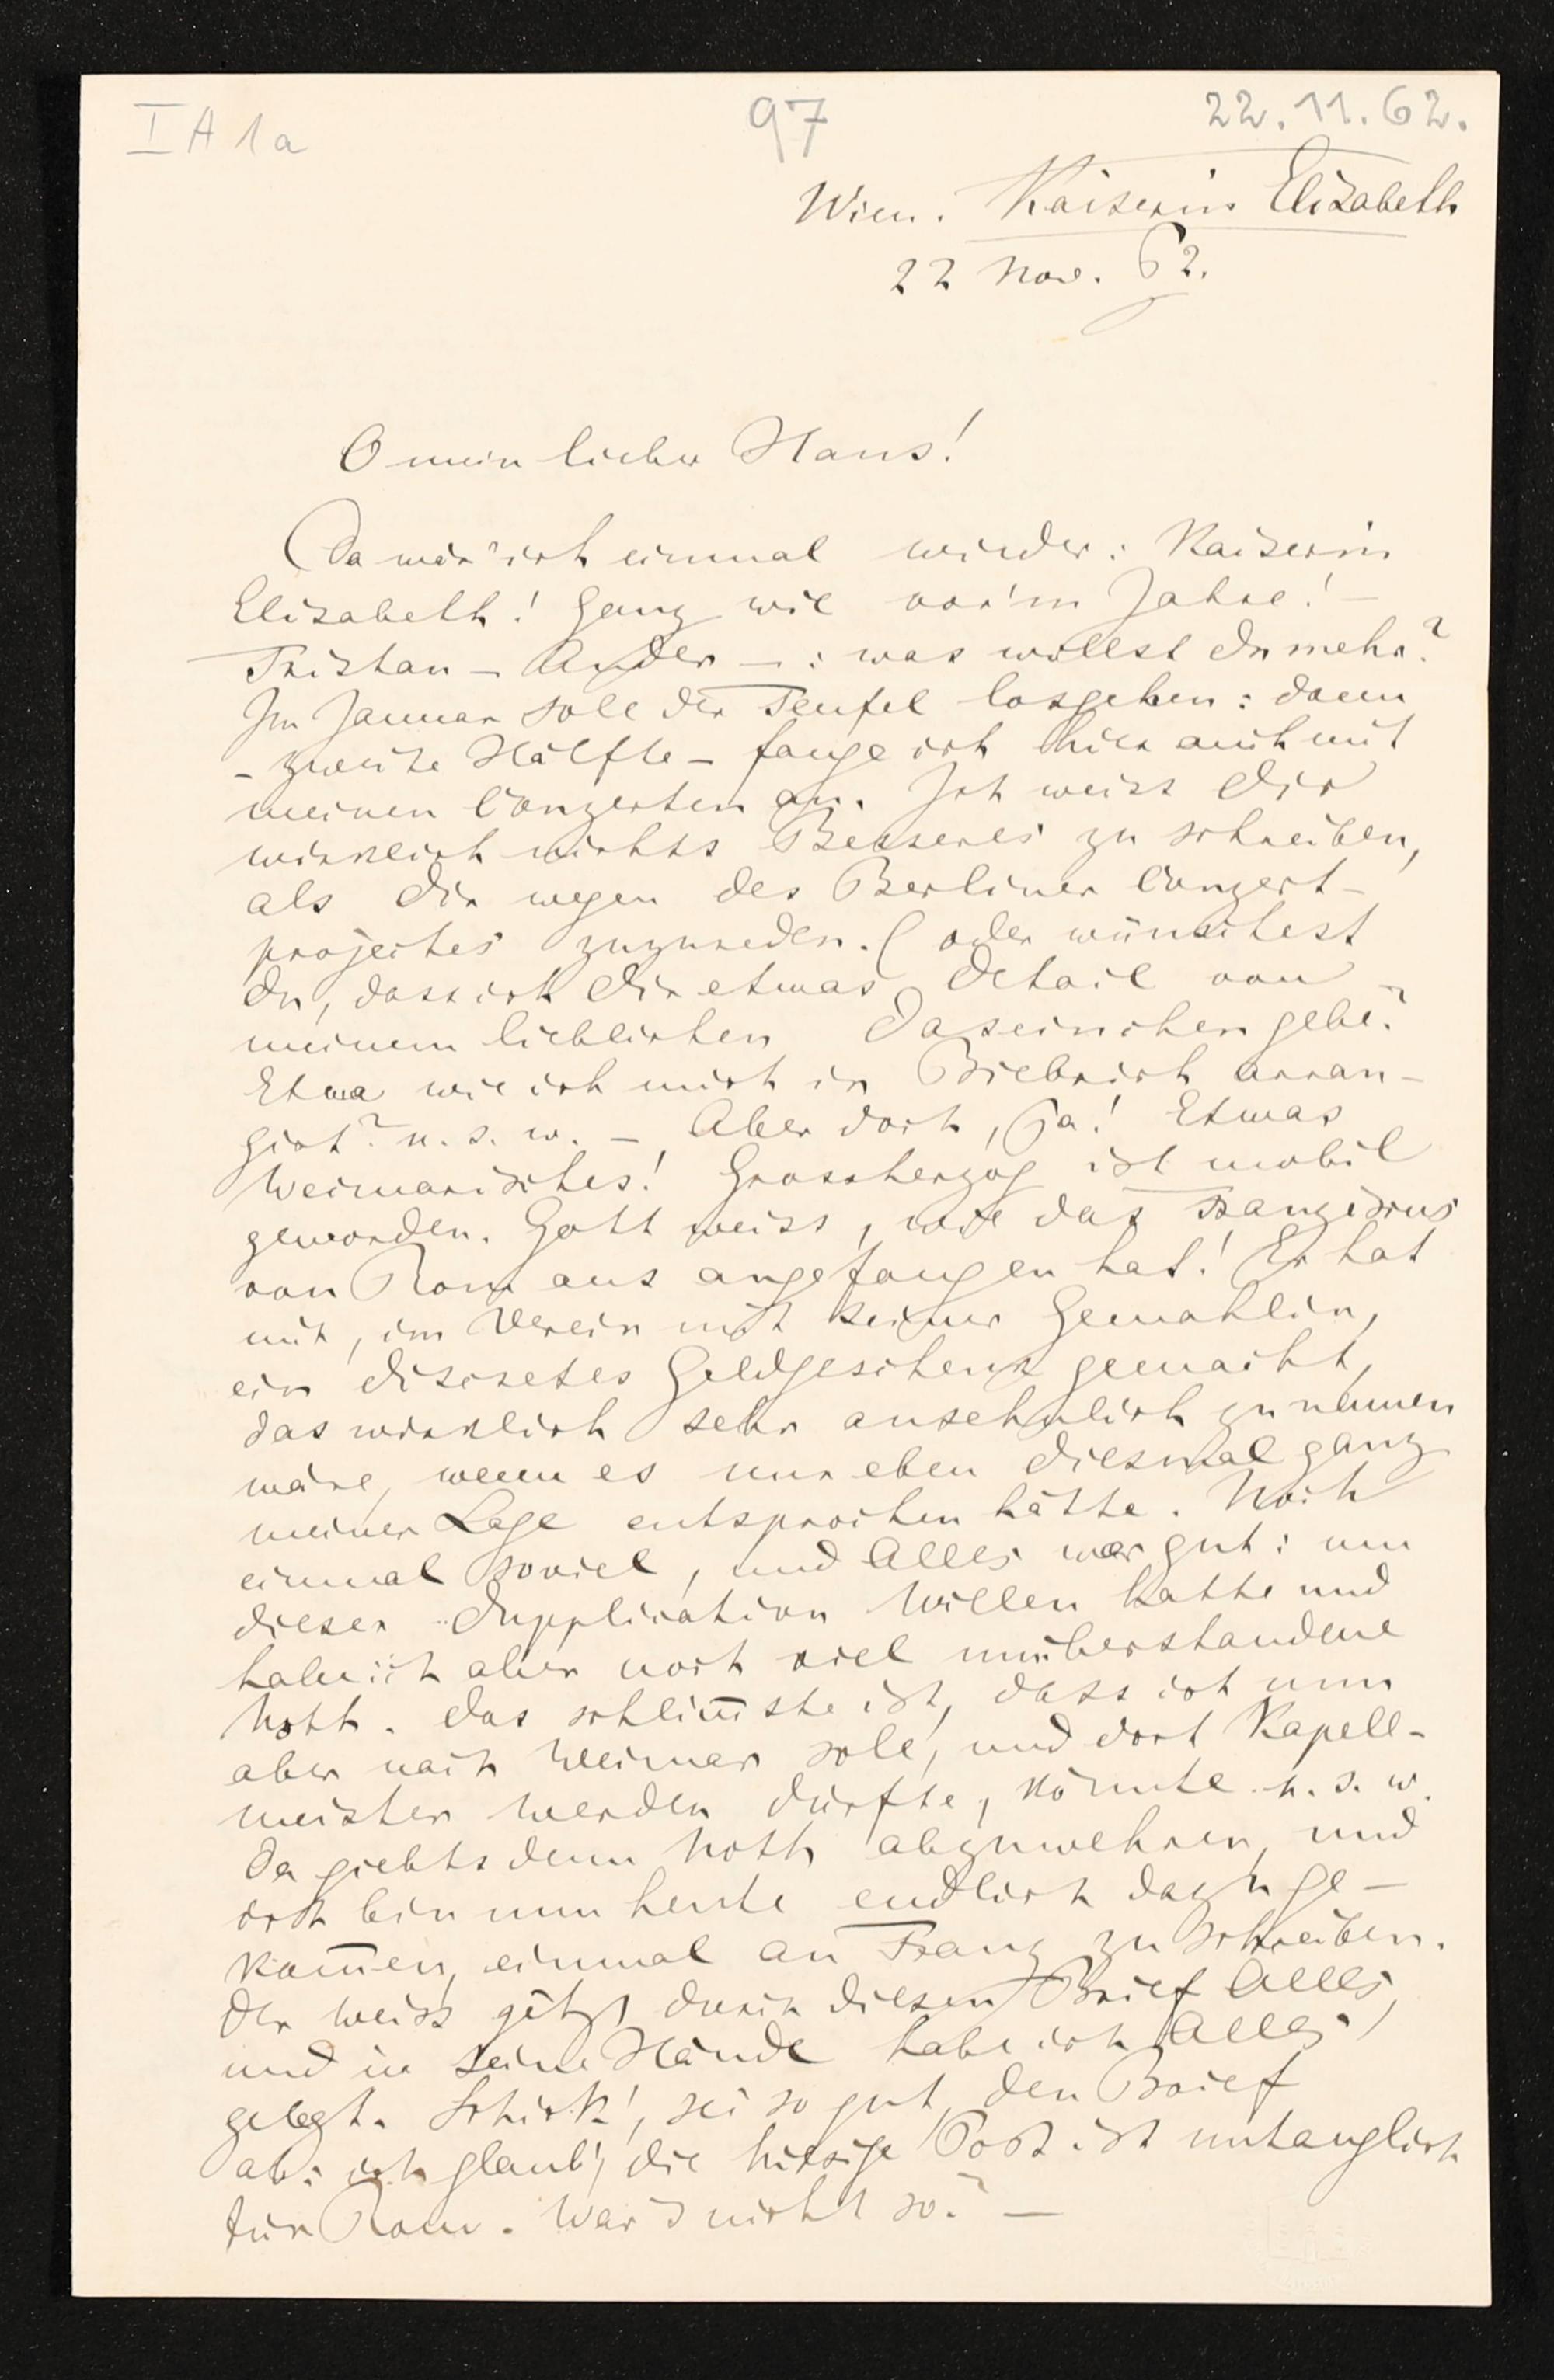 I A 1a
97
22.11.62.
Wien. Kaiserin Elisabeth
22 Nov. 62.
O mein lieber Hans!
Da wär' ich einmal wieder: Kaiserin
Elisabeth! Ganz wie vor'm Jahre! –
Tristan – Ander – : was willst du mehr?
Im Januar soll der Teufel losgehen: dann
– zweite Hälfte – fange ich hier auch mit
meinen Conzerten an. Ich weiss Dir
wirklich nichts Besseres zu schreiben,
als Dir wegen des Berliner Conzert-
projectes zuzureden. (oder wünschest
du, dass ich Dir etwas Detail von
meinem lieblichen Daseinchen gebe?
Etwa wie ich mich in Biebrich arran-
girt? u. s. w. – Aber doch, ja! Etwas
Weimarisches! Grossherzog ist mobil
geworden. Gott weiss, wie das Franziskus
von Rom aus angefangen hat! Er hat
mir, im Verein mit seiner Gemahlin,
ein discretes Geldgeschenk gemacht,
das wirklich sehr ansehnlich zu nennen
wäre, wenn es nur eben diesmal ganz
meiner Lage entsprochen hätte. Noch
einmal soviel, und Alles war gut: um
dieser Dupplication Willen hatte und
habe ich aber noch viel unüberstandene
Noth. Das schlim̅ste ist, dass ich nun
aber nach Weimar soll, und dort Kapell-
meister werden dürfte, könnte u. s. w.
Da giebts denn Noth abzuwehren, und
ich bin nun heute endlich dazu ge-
kom̅en, einmal an Franz zu schreiben.
Der weiss jetzt durch diesen Brief Alles,
und in seine Hände habe ich Alles
gelegt. Schick', sei so gut, den Brief
ab: ich glaub', die hiesige Post ist untauglich
für Rom. War's nicht so? –